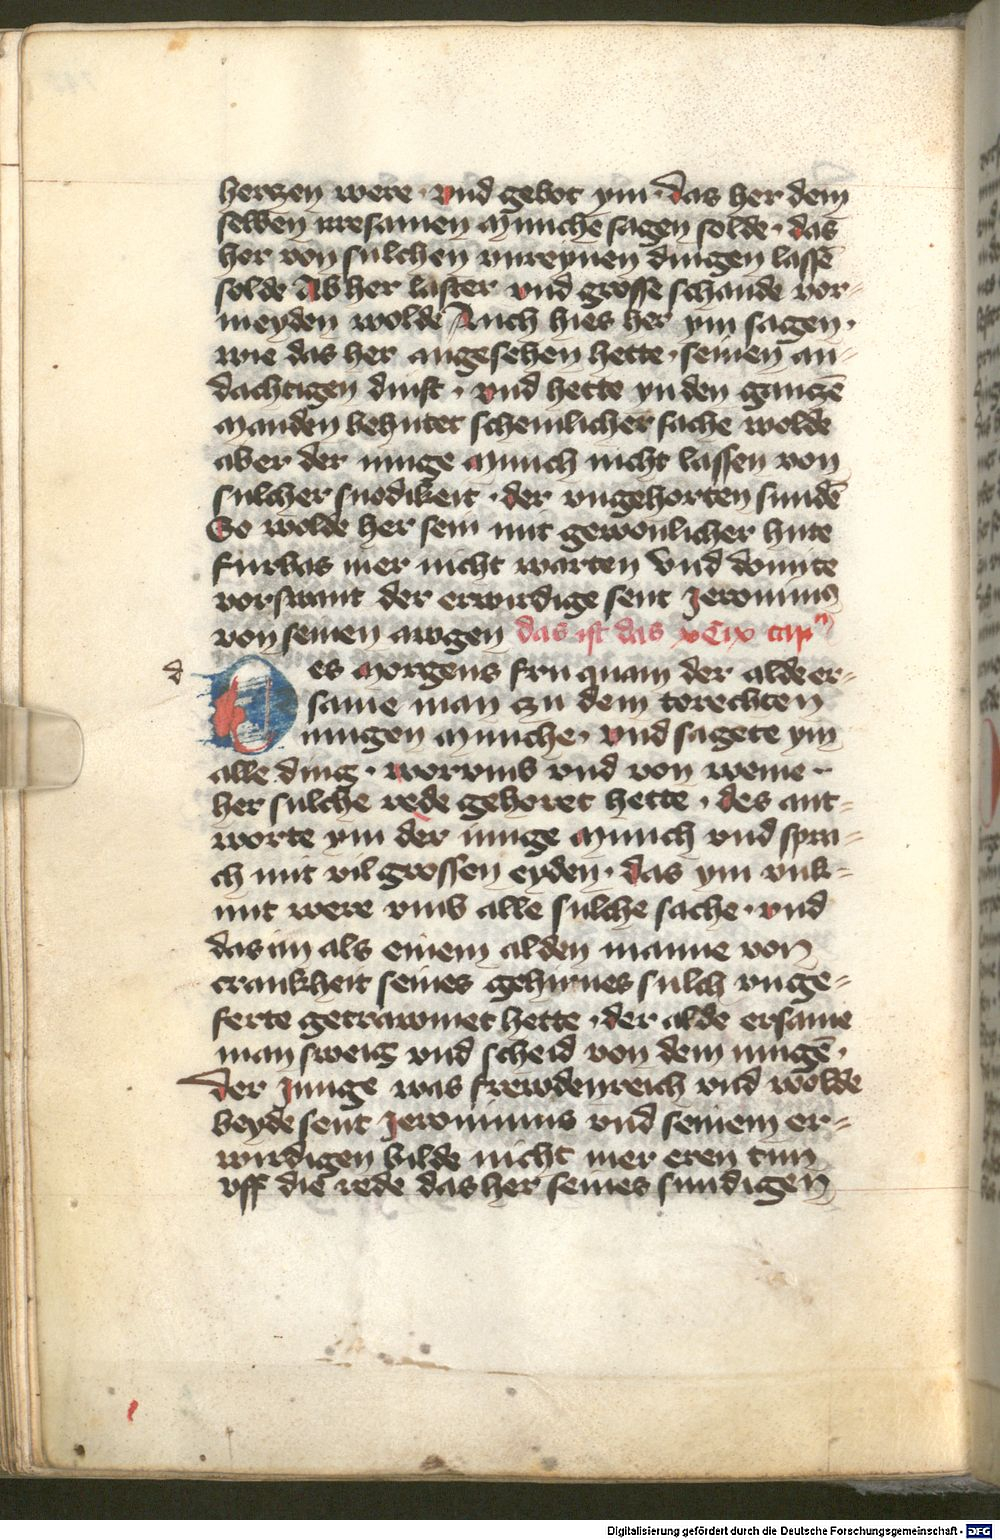 herczen were · vnd gebot ym Das her dem
selben irresamen Munche sagen solde · das
her von sulchen vnreynen dingen lassē
solde Ab her laster vnd grosse schande vor-
meyden wolde Auch hies her ym sagen ·
wie das her angesehen hette · seinen an-
dachtigen dinst · vnd hette yn den ganczē
Manden behutet schemlicher sache wolde
aber der iunge Munch nicht lassen von
sulcher snodikeit · der vngehorten sundē
So wolde her sein mit gewonlicher hute
furbas mer nicht warten Vnd domite
vorswant der erwirdige sent Jeronimus
von seinen awgen das ist das xCix cap
d
Des Morgens fru quam der alde er-
same man czu dem torechten
iungen Munche · vnd sagete ym
alle ding · worvmb vnd von weme ·
her sulche rede gehoret hette · des ant-
worte ym der iunge Munch vnd spra-
ch mit vil grossen eyden · das ym vnk-
unt were vmb alle sulche sache · vnd
das im als einem alden manne von
crankheit seines gehirnes sulch vnge-
ferte getrawmet hette · der alde ersame
man sweig vnd scheid von dem iungē ·
Der Junge was frewdenreich vnd wolde
beyde sent Jeronimus vnd seinem er-
wirdigen bilde nicht mer eren tun
vff die rede das her seines sundigen
Digitalisierung gefördert durch die Deutsche Forschungsgemeinschaft - DFG